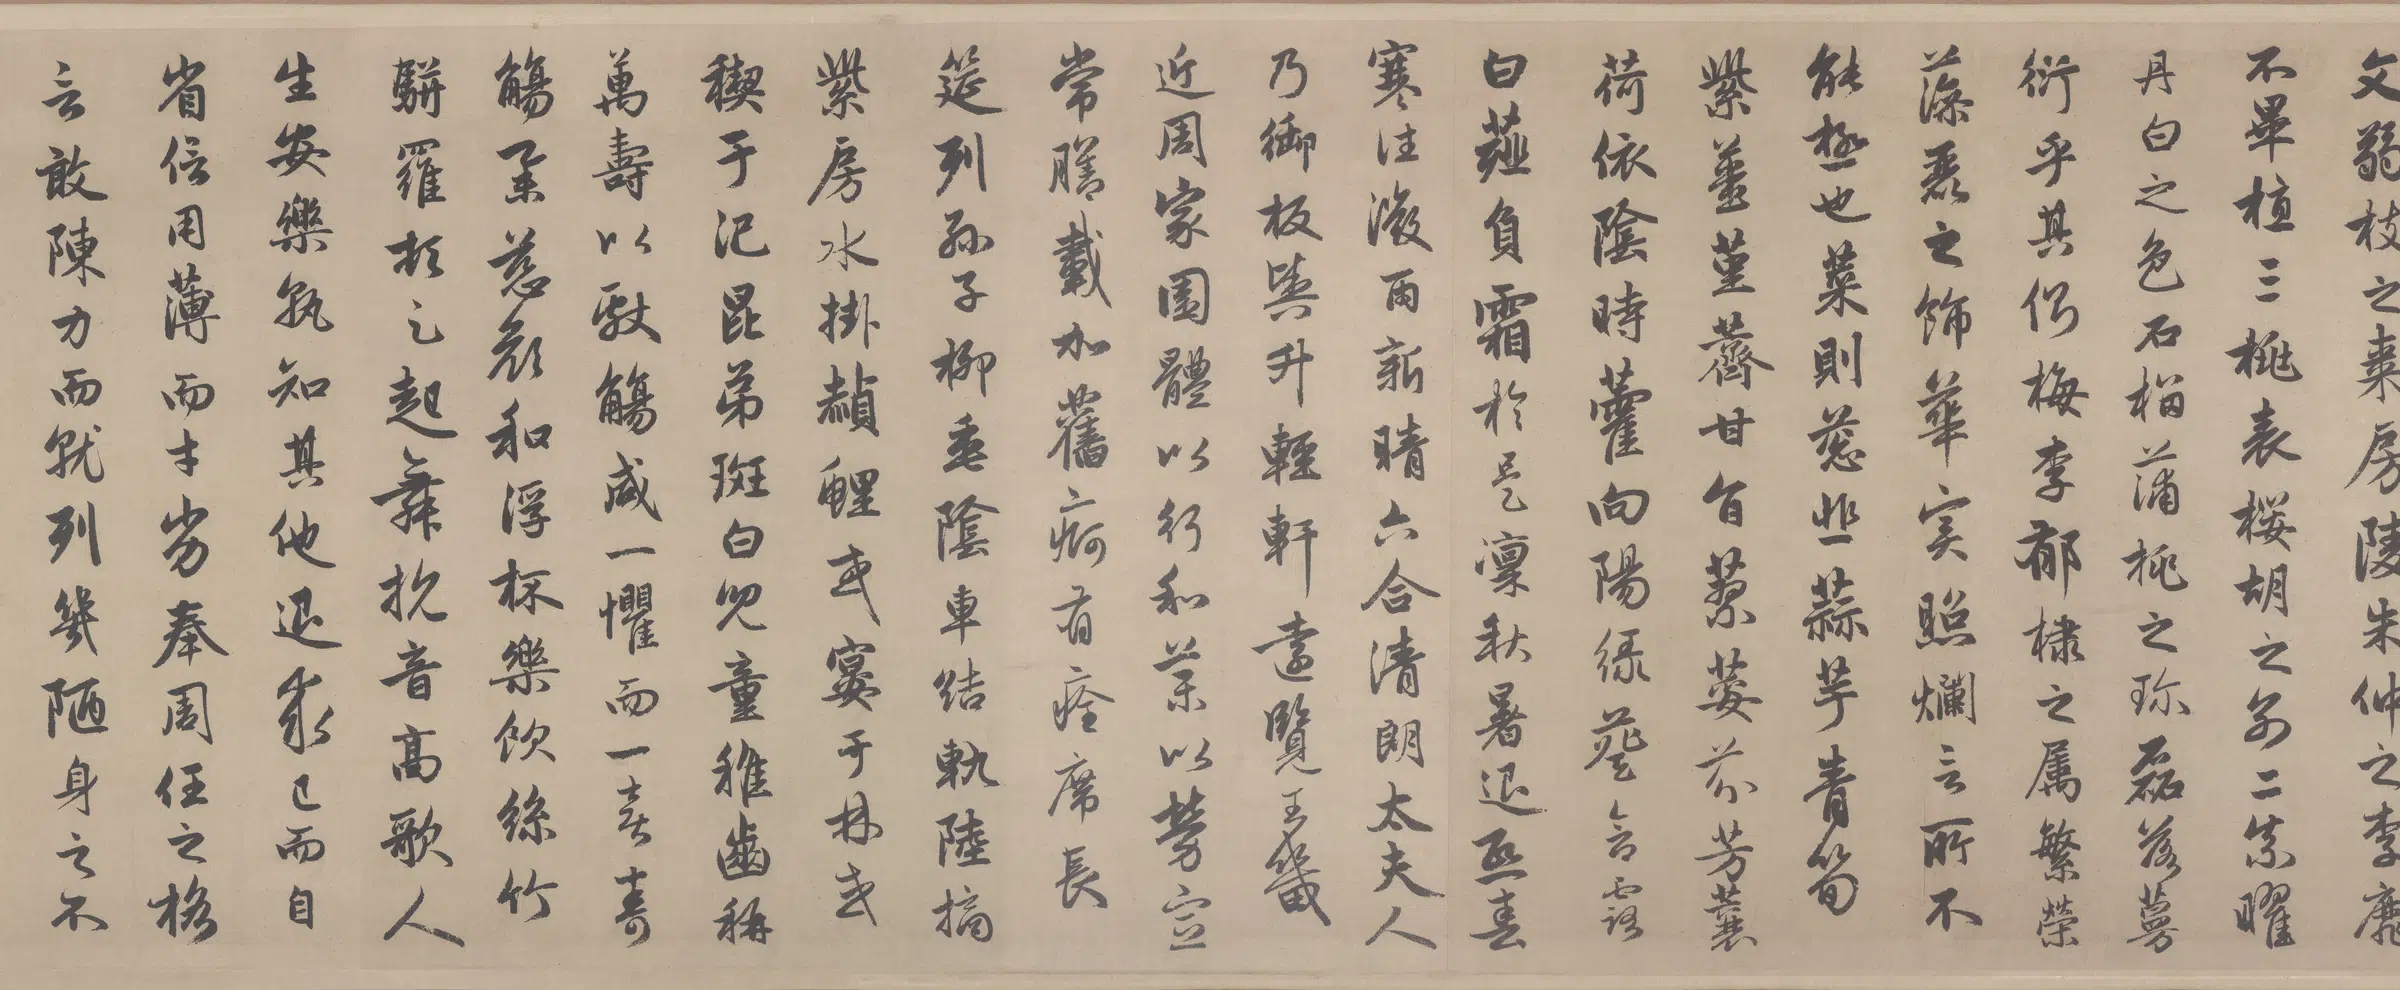 文弱枝之棗房陵朱仲之李靡
不畢植三桃表櫻胡之別二柰曜
丹白之色石榴蒲桃之珍磊落蔓
衍乎其側梅李郁棣之属繁榮
藻麗之飾華実照爛言所不
能極也菜則葱韭蒜芋青筍
紫薑堇薺甘旨蓼荽芬芳蘘
荷依陰時藿向陽緑葵含露
白薤負霜於是凛秋暑退熙春
寒往澂雨新晴六合清朗太夫人
乃御板輿升輕軒遠覽王畿
近周家園體以行和藥以勞宣
常膳載加舊痾有痊席長
筵列孫子柳垂陰車結軌陸摘
紫房水掛赬鯉或宴于林或
禊于汜昆弟斑白兒童稚齒稱
萬壽以獻觴咸一懼而一喜壽
觴舉慈顔和浮杯樂飲絲竹
駢羅頓足起舞抗音高歌人
生安樂孰知其他退求己而自
省信用薄而才劣奉周任之格
言敢陳力而就列幾陋身之不